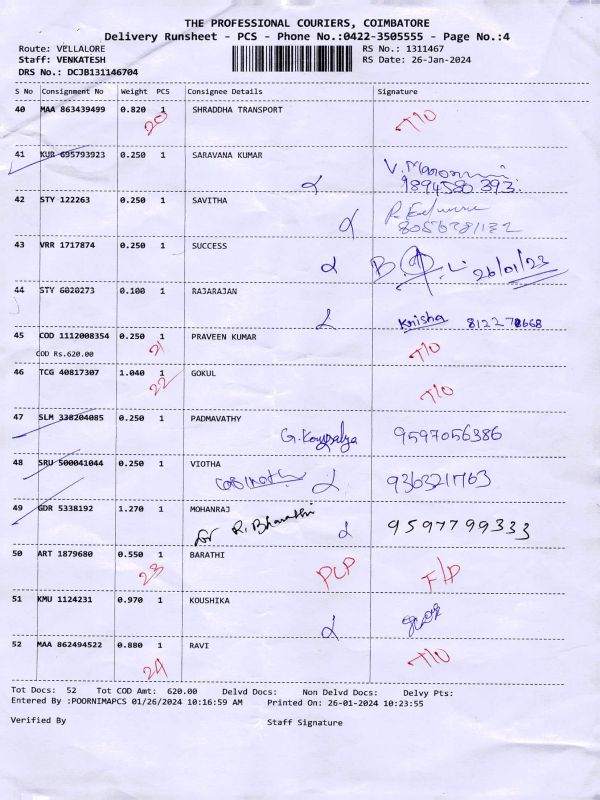 THE PROFESSIONAL COURIERS, COIMBATORE
Delivery Runsheet - PCS - Phone No.:0422-3505555 - Page No.:4
Route: VELLALORE RS No.: 1311467
Staff: VENKATESH RS Date: 26-Jan-2024
DRS No.: DCJB131146704
S No Consignment No Weight PCS Consignee Details Signature
40 MAA 863439499 0.820 1 SHRADDHA TRANSPORT
20 T/O
41 KUR 695793923 0.250 1 SARAVANA KUMAR
9894580 393
42 STY 122263 0.250 1 SAVITHA
8056381132
43 VRR 1717874 0.250 1 SUCCESS
26/01/23
44 STY 6020273 0.100 1 RAJARAJAN
Krisha
45 COD 1112008354 0.250 1 PRAVEEN KUMAR
COD Rs.620.00 21 T/O
46 TCG 40817307 1.040 1 GOKUL
22 T/O
47 SLM 338204085 0.250 1 PADMAVATHY
9597056386
48 SRU 500041044 0.250 1 VIOTHA
9363211763
49 GDR 5338192 1.270 1 MOHANRAJ
R. Bharathi 9597799333
50 ART 1879680 0.550 1 BARATHI
23 PCP F/P
51 KMU 1124231 0.970 1 KOUSHIKA
52 MAA 862494522 0.880 1 RAVI
24 T/O
Tot Docs: 52 Tot COD Amt: 620.00 Delvd Docs: Non Delvd Docs: Delvy Pts:
Entered By :POORNIMAPCS 01/26/2024 10:16:59 AM Printed On: 26-01-2024 10:23:55
Verified By Staff Signature